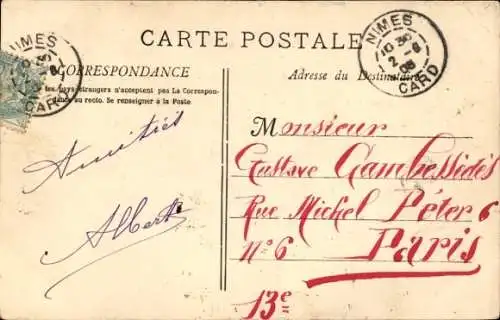 CARTE POSTALE
CORRESPONDANCE
les pays étrangers n'acceptent pas La Correspon-
dance au recto. Se renseigner à la Poste.
Adresse du Destinataire
NIMES
GARD
NIMES
10 35
2 - 6
08
GARD
Amitiés
Albert
Monsieur
Gustave Gambessédès
Rue Michel Péter 6
N° 6 Paris
13e